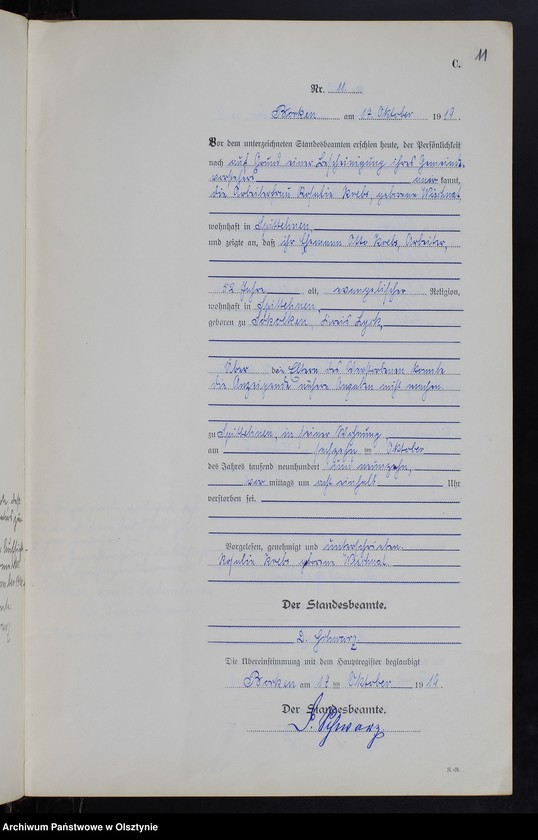 C.
11
Nr. 11
Borken am 17 Oktober 1919.
Vor dem unterzeichneten Standesbeamten erschien heute, der Persönlichkeit
nach auf Grund einer Bescheinigung ihres Gemeinde-
vorstehers aner kannt,
die Arbeiterfrau Rosalie Krebs, geborene
wohnhaft in Spittehnen,
und zeigte an, daß ihr Ehemann Otto Krebs, Arbeiter,
52 Jahre alt, evangelischer Religion,
wohnhaft in Spittehnen,
geboren zu Sokolken, Kreis Lyck,
Über die Eltern des Verstorbenen konnte
die Anzeigende nähere Angaben nicht machen.
zu Spittehnen, in seiner Wohnung
am sechzehn ten Oktober
des Jahres tausend neunhundert und neunzehn,
vor mittags um acht einhalb Uhr
verstorben sei.
Vorgelesen, genehmigt und unterschrieben.
Rosalie Krebs geborene
Der Standesbeamte.
Schwarz
Die Übereinstimmung mit dem Hauptregister beglaubigt
Borken am 17 ten Oktober 1919.
Der Standesbeamte.
Schwarz
Archiwum Państwowe w Olsztynie